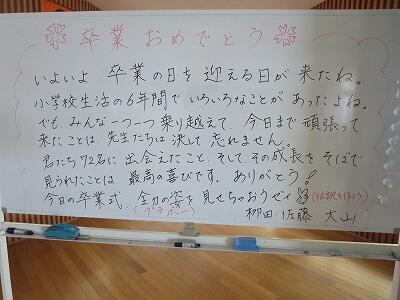 卒業おめでとう
いよいよ 卒業の日を迎える日が来たね。
小学校生活の6年間でいろいろなことがあったよね。
でも、みんな一つ一つ乗り越えて、今日まで頑張って
来たことは、先生たちは決して忘れません。
君たち72名に出会えたこと、そして、その成長をそばで
見られたことは、最高の喜びです。ありがとう!
今日の卒業式、全力の姿を見せちゃおうゼィ(伝説を作ろう)
柳田・佐藤・大山